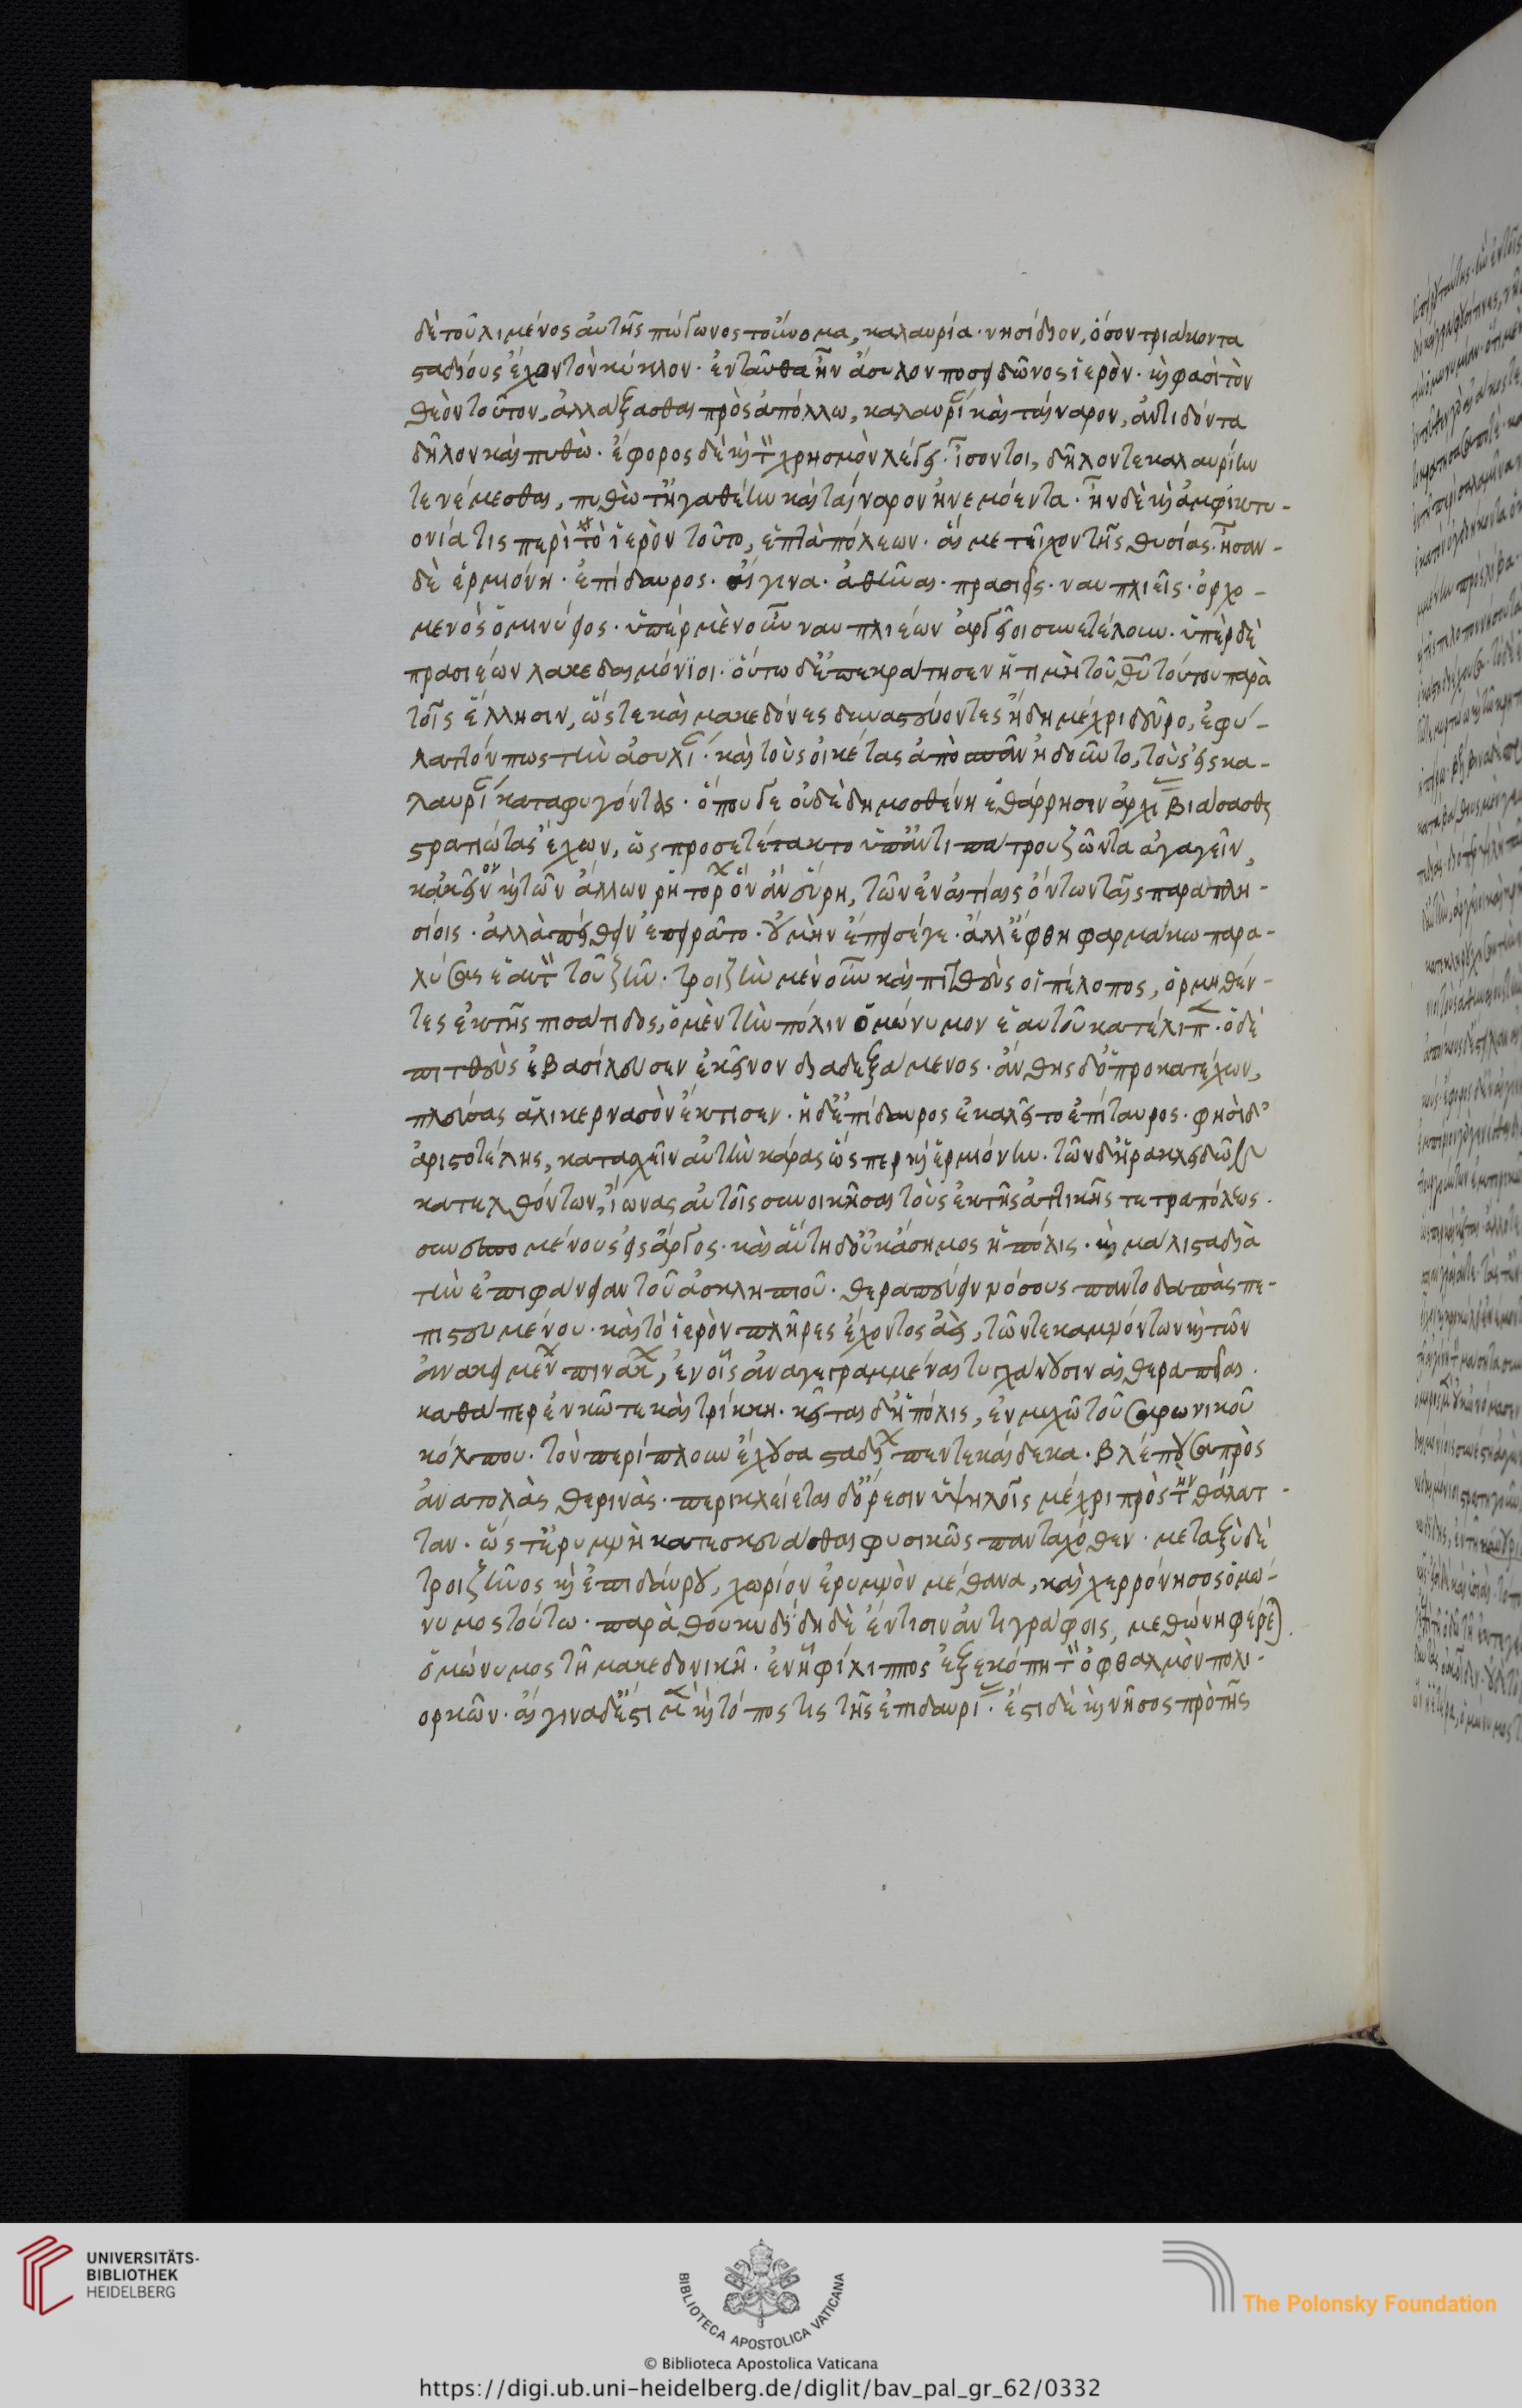 δὲ τοῦ λιμένος αὐτῆς πώγωνος τοὔνομα, καλαυρία· νησίδιον, ὅσον τριάκοντα
σταδίους ἔχον τὸν κύκλον· ἐνταῦθα ἦν ἄσυλον ποσειδῶνος ἱερὸν· καὶ φασὶ τὸν
θεὸν τοῦτον, ἀλλάξασθαι πρὸς ἀπόλλω, καλαυρίαν καὶ ταίναρον, ἀντιδόντα
δῆλον καὶ πυθὼ· ἔφορος δὲ καὶ τὸν χρησμὸν λέγει· ἶσόν τοι, δῆλόν τε καλαυρίην
τε νέμεσθαι, πυθώ τ' ἠγαθέην καὶ ταίναρον ἠνεμόεντα· ἦν δὲ καὶ ἀμφικτυ-
ονία τις περὶ τὸ ἱερὸν τοῦτο, ἑπτὰ πόλεων· αἳ μετεῖχον τῆς θυσίας· ἦσαν-
δὲ ἑρμιόνη· ἐπίδαυρος· αἴγινα· ἀθῆναι· πρασιεῖς· ναυπλιεῖς· ὀρχο-
μενὸς ὁ μινύειος· ὑπὲρ μὲν οὖν ναυπλιέων ἀργεῖοι συνετέλουν· ὑπὲρ δὲ
πρασιέων λακεδαιμόνιοι· οὕτω δ' ἐπεκράτησεν ἡ τιμὴ τοῦ θεοῦ τούτου παρὰ
τοῖς ἕλλησιν, ὥστε καὶ μακεδόνες δυναστεύοντες ἤδη μέχρι δεῦρο, ἐφύ-
λαττόν πως τὴν ἀσυλίαν· καὶ τοὺς ἱκέτας ἀποσπᾶν ᾐδοῦντο, τοὺς εἰς κα-
λαυρίαν καταφυγόντας· ὅπου γε οὐδὲ δημοσθένη ἐθάρρησεν ἀρχίας βιάσασθαι
στρατιώτας ἔχων, ὡς προσετέτακτο ὑπ' ἀντιπάτρου ζῶντα ἀγαγεῖν,
κἀκεῖνον καὶ τῶν ἄλλων ῥητόρων ὃν ἂν εὕρη, τῶν ἐν αἰτίαις ὄντων ταῖς παραπλη-
σίοις· ἀλλὰ πείθειν ἐπειρᾶτο· οὐ μὴν ἔπεισέ γε· ἀλλ' ἔφθη φαρμάκω παρα-
λύσας ἑαυτὸν τοῦ ζῆν· τροιζὴν μὲν οὖν καὶ πιτθεὺς οἱ πέλοπος, ὁρμηθέν-
τες ἐκ τῆς πισάτιδος, ὁ μὲν τὴν πόλιν ὁμώνυμον ἑαυτοῦ κατέλιπεν· ὁ δὲ
πιτθεὺς ἐβασίλευσεν ἐκεῖνον διαδεξάμενος· ἄνθης δ' ὁ προκατέχων,
πλεύσας ἁλικερνασὸν ἔκτισεν· ἡ δ' ἐπίδαυρος ἐκαλεῖτο ἐπίταυρος· φησὶ δ'
ἀριστοτέλης, κατασχεῖν αὐτὴν κάρας ὥσπερ καὶ ἑρμιόνην· τῶν δ' ἡρακλειδῶν
κατελθόντων, ἴωνας αὐτοῖς συνοικῆσαι τοὺς ἐκ τῆς ἀττικῆς τετραπόλεως·
συνεπομένους εἰς ἄργος· καὶ αὕτη δ' οὐκ ἄσημος ἡ πόλις· καὶ μάλιστα διὰ
τὴν ἐπιφάνειαν τοῦ ἀσκληπιοῦ· θεραπεύειν νόσους παντοδαπὰς πε-
πιστευμένου· καὶ τὸ ἱερὸν πλῆρες ἔχοντος ἀεί, τῶν τε καμνόντων καὶ τῶν
ἀνακειμένων πινάκων, ἐν οἷς ἀναγεγραμμέναι τυγχάνουσιν αἱ θεραπεῖαι·
καθάπερ ἐν κῶ τε καὶ τρίκκη· κεῖται δ' ἡ πόλις, ἐν μυχῶ τοῦ σαρωνικοῦ
κόλπου· τὸν περίπλουν ἔχουσα σταδίων πεντεκαίδεκα· βλέπουσα πρὸς
ἀνατολὰς θερινὰς· περικλείεται δ' ὄρεσιν ὑψηλοῖς μέχρι πρὸς τὴν θάλατ-
ταν· ὥστ' ἐρυμνὴ κατεσκεύασθαι φυσικῶς πανταχόθεν· μεταξὺ δὲ
τροιζῆνος καὶ ἐπιδαύρου, χωρίον ἐρυμνὸν μέθανα, καὶ χερρόνησος ὁμώ-
νυμος τούτω· παρὰ θουκυδίδη δὲ ἔν τισιν ἀντιγράφοις, μεθώνη φέρεται·
ὁμώνυμος τῆ μακεδονικῆ· ἐν ἧ φίλιππος ἐξεκόπη τὸν ὀφθαλμὸν πολι-
ορκῶν· αἴγινα δ' ἔστι μὲν καὶ τόπος τις τῆς ἐπιδαυρίας· ἔστι δὲ καὶ νῆσος πρὸ τῆς
UNIVERSITÄTS-
BIBLIOTHEK
HEIDELBERG
BIBLIOTECA APOSTOLICA VATICANA
The Polonsky Foundation
© Biblioteca Apostolica Vaticana
https://digi.ub.uni-heidelberg.de/diglit/bav_pal_gr_62/0332